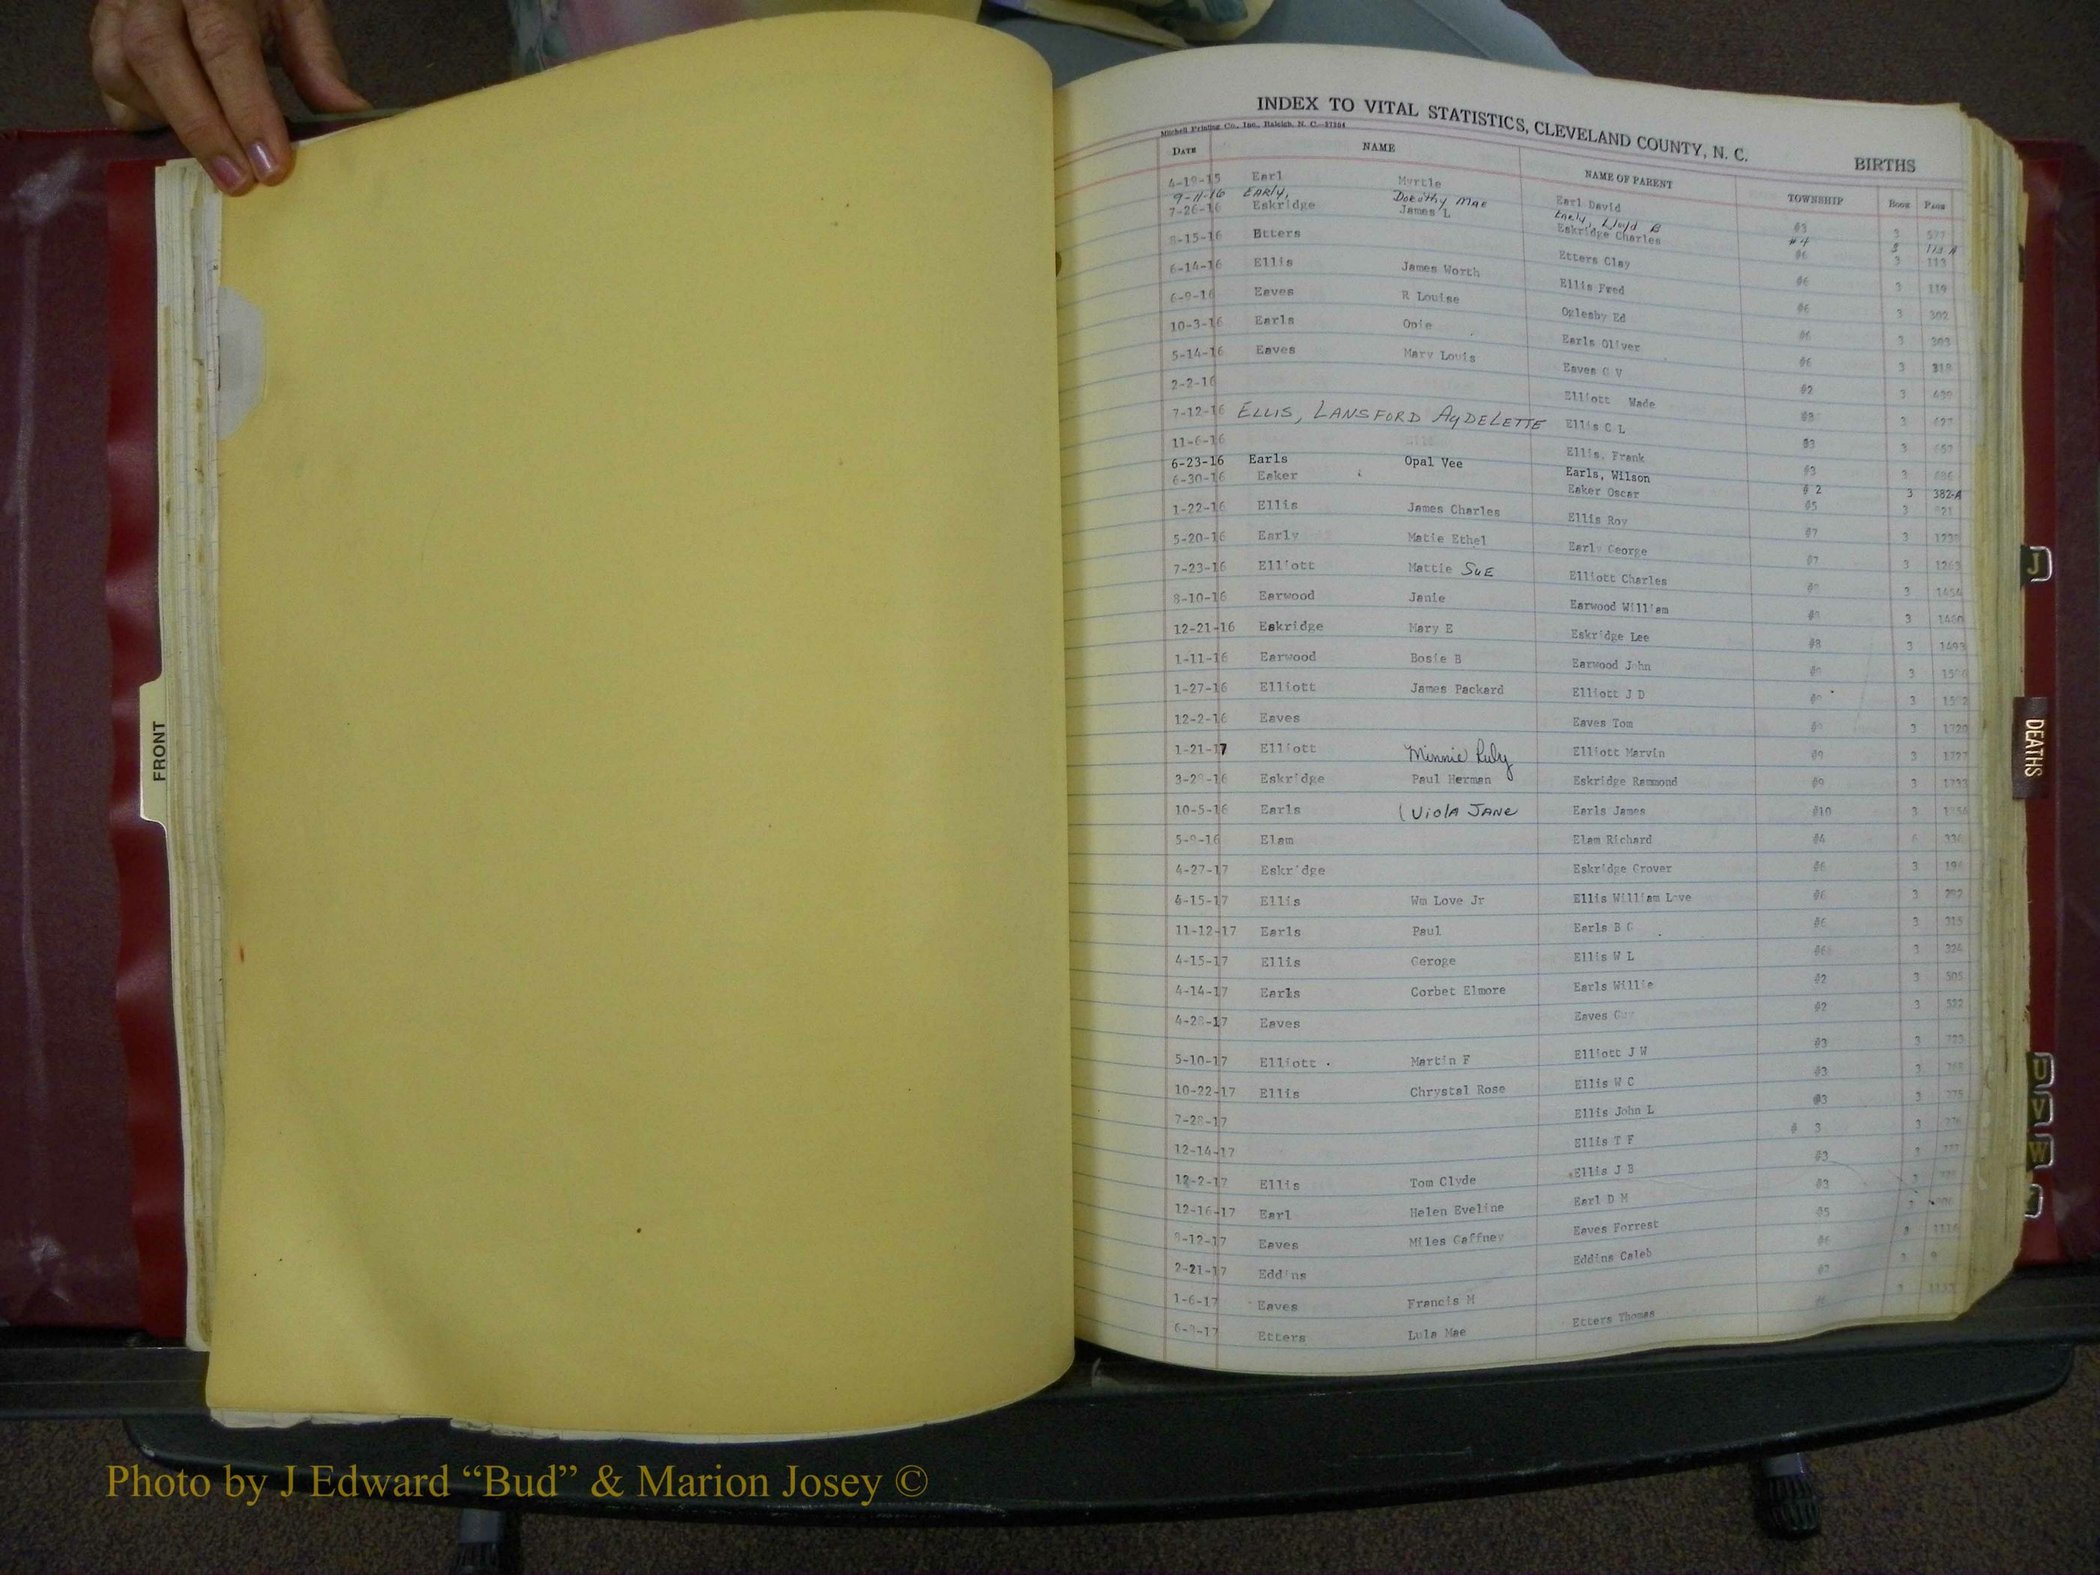 INDEX TO VITAL STATISTICS, CLEVELAND COUNTY, N. C. BIRTHS
Mitchell Printing Co., Inc., Raleigh, N. C.
DATE NAME NAME OF PARENT TOWNSHIP BOOK PAGE
4-19-15 Earl Myrtle Earl David #3 3 577
9-11-16 EARly, Dorothy Mae Early, Lloyd B #4 3
7-26-16 Eskridge James L Eskridge Charles #6 3 113
8-15-16 Etters Etters Clay #6 3 119
6-14-16 Ellis James Worth Ellis Fred #6 3 302
6-9-16 Eaves R Louise Oglesby Ed #6 3 303
10-3-16 Earls Opie Earls Oliver #6 3 318
5-14-16 Eaves Mary Louis Eaves C V #2 3
2-2-16 Elliott Wade #3 3 627
7-12-16 ELLIS, LANSFORD AyDELETTE Ellis C L #3 3 657
11-6-16 Ellis, Frank #3 3 686
6-23-16 Earls Opal Vee Earls, Wilson # 2 3 382-A
6-30-16 Eaker Eaker Oscar #5 3 921
1-22-16 Ellis James Charles Ellis Roy #7 3
5-20-16 Early Matie Ethel Early George #7 3 1263
7-23-16 Elliott Mattie SuE Elliott Charles 3 1454
8-10-16 Earwood Janie Earwood William 3
12-21-16 Eskridge Mary E Eskridge Lee #8 3 1493
1-11-16 Earwood Bosie B Earwood John 3
1-27-16 Elliott James Packard Elliott J D 3
12-2-16 Eaves Eaves Tom 3 1720
1-21-17 Elliott Minnie Ruby Elliott Marvin #9 3 1727
3-28-16 Eskridge Paul Herman Eskridge Rammond #9 3 1733
10-5-16 Earls (Viola JANe Earls James #10 3
5-9-16 Elam Elam Richard #4 6 336
4-27-17 Eskridge Eskridge Grover #6 3
4-15-17 Ellis Wm Love Jr Ellis William Love #6 3 292
11-12-17 Earls Paul Earls B G #6 3 315
4-15-17 Ellis Geroge Ellis W L #6 3 324
4-14-17 Earls Corbet Elmore Earls Willie #2 3 505
4-28-17 Eaves Eaves Guy #2 3 522
5-10-17 Elliott Martin F Elliott J W #3 3
10-22-17 Ellis Chrystal Rose Ellis W C #3 3
7-28-17 Ellis John L #3 3 775
12-14-17 Ellis T F # 3 3 776
12-2-17 Ellis Tom Clyde Ellis J B #3 3
12-16-17 Earl Helen Eveline Earl D M #3
Eaves Miles Gaffney Eaves Forrest #5
2-21-17 Eddins Eddins Caleb #6
1-6-17 Eaves Francis M
Etters Lula Mae Etters Thomas
FRONT
J
DEATHS
U
V
W
Photo by J Edward “Bud” & Marion Josey ©